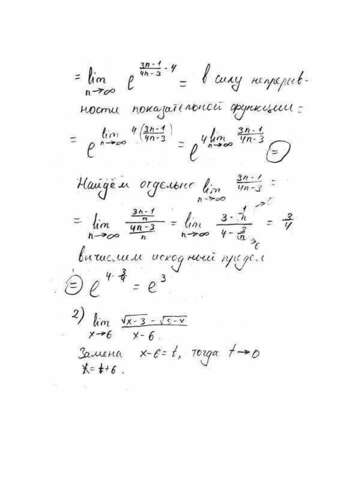 = lim n→∞ e^((3n-1)/(4n-3)·4) = в силу непрерыв-
ности показательной функции =
= e^(lim n→∞ 4((3n-1)/(4n-3))) = e^(4 lim n→∞ (3n-1)/(4n-3)) ⊜
Найдём отдельно lim n→∞ (3n-1)/(4n-3) =
= lim n→∞ ((3n-1)/n)/((4n-3)/n) = lim n→∞ (3-1/n)/(4-3/n) = 3/4
вычислим исходный предел
⊜ e^(4·3/4) = e^3
2) lim x→6 (√(x-3) - √(5-4))/(x-6)
Замена x-6=t, тогда t→0
x=t+6.